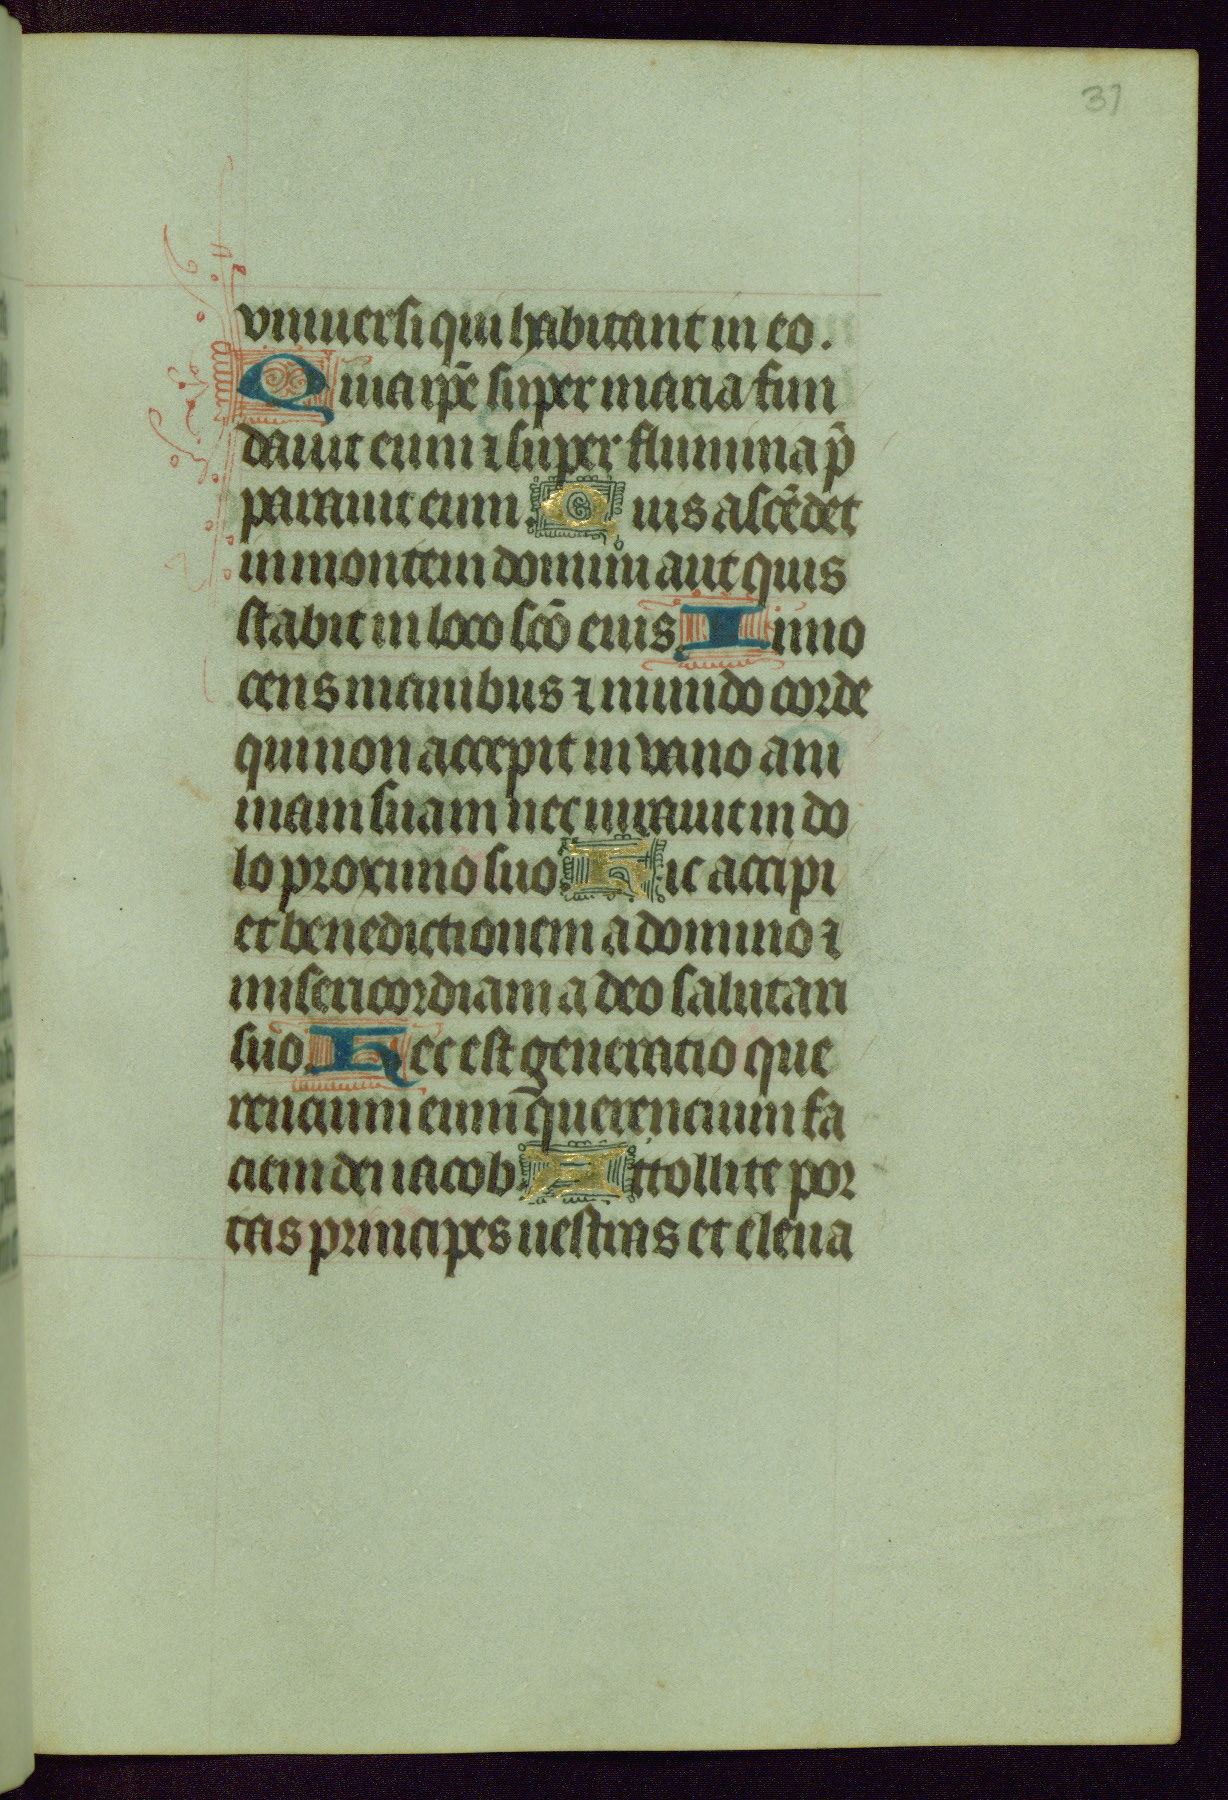 31
vniuersi qui habitant in eo.
Quia ip̄e super maria fun
dauit eum ⁊ super flumina p̄
parauit eum. Quis ascēdet
in montem domini aut quis
stabit in loco scō eius. Inno
cens manibus ⁊ mundo corde
qui non accepit in vano ani
mam suam nec iurauit in do
lo proximo suo. Hic accipi
et benedictionem a domino ⁊
misericordiam a deo salutari
suo. Hec est generatio que
rencium eum q̄uerencium fa
ciem dei iacob. Attollite por
tas principes uestras et eleua